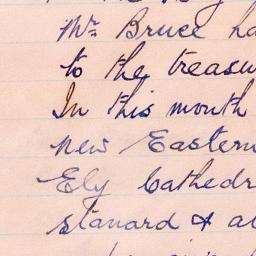 Mr Bruce ha
to the treasu
In this month
new Eastern
Ely Cathedr
stanard & al